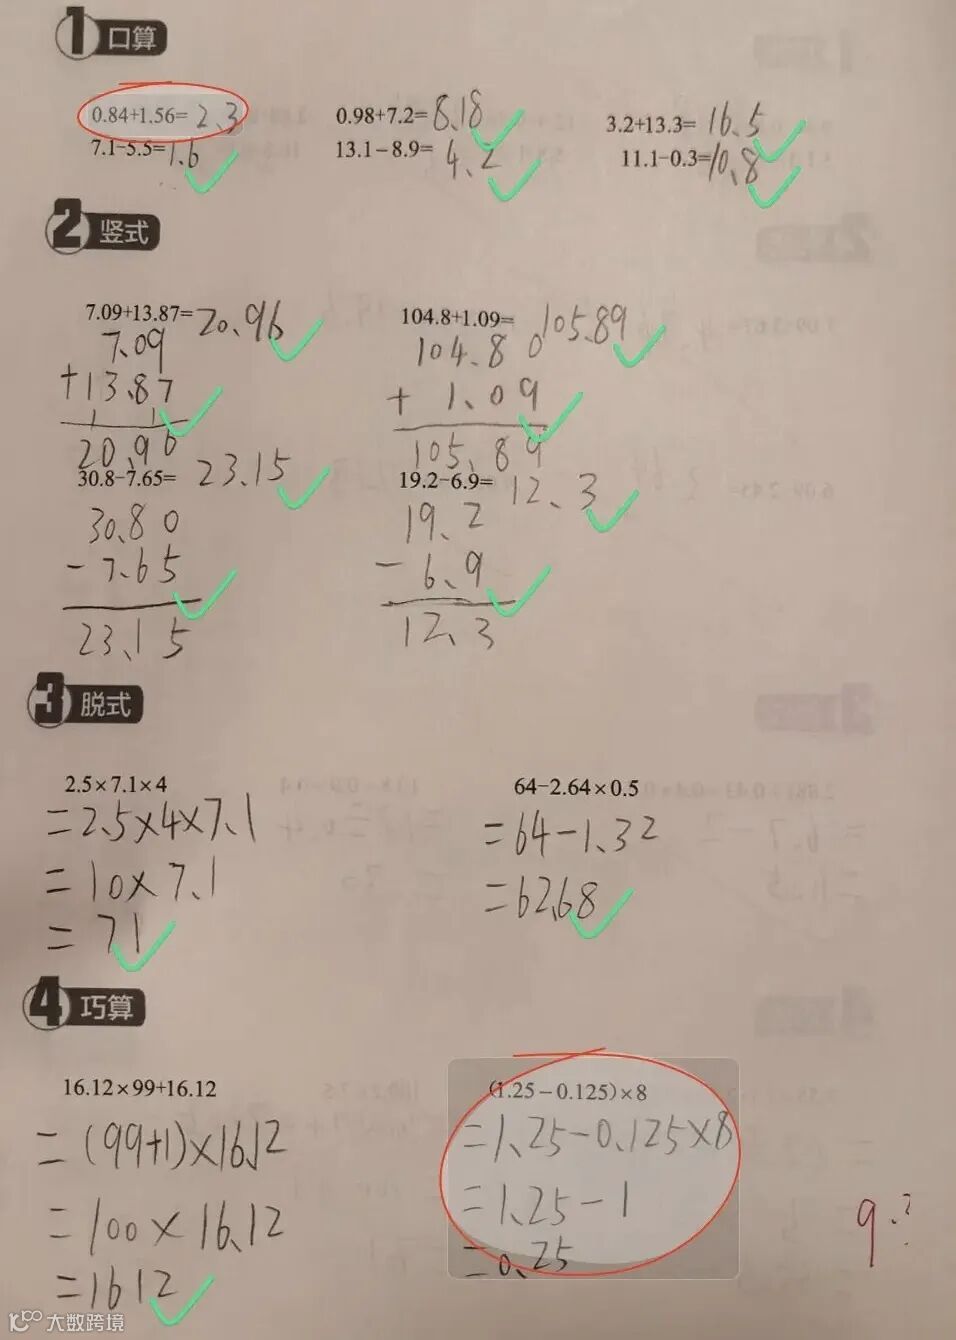 1 口算
0.84+1.56= 2.3
0.98+7.2= 8.18
3.2+13.3= 16.5
7.1-5.5= 1.6
13.1-8.9= 4.2
11.1-0.3= 10.8
2 竖式
7.09+13.87= 20.96
7.09
+13.87
1 1
20.96
104.8+1.09= 105.89
104.80
+ 1.09
105.89
30.8-7.65= 23.15
30.80
- 7.65
23.15
19.2-6.9= 12.3
19.2
- 6.9
12.3
3 脱式
2.5×7.1×4
=2.5×4×7.1
=10×7.1
=71
64-2.64×0.5
=64-1.32
=62.68
4 巧算
16.12×99+16.12
=(99+1)×16.12
=100×16.12
=1612
(1.25-0.125)×8
=1.25-0.125×8
=1.25-1
=0.25
大数跨境